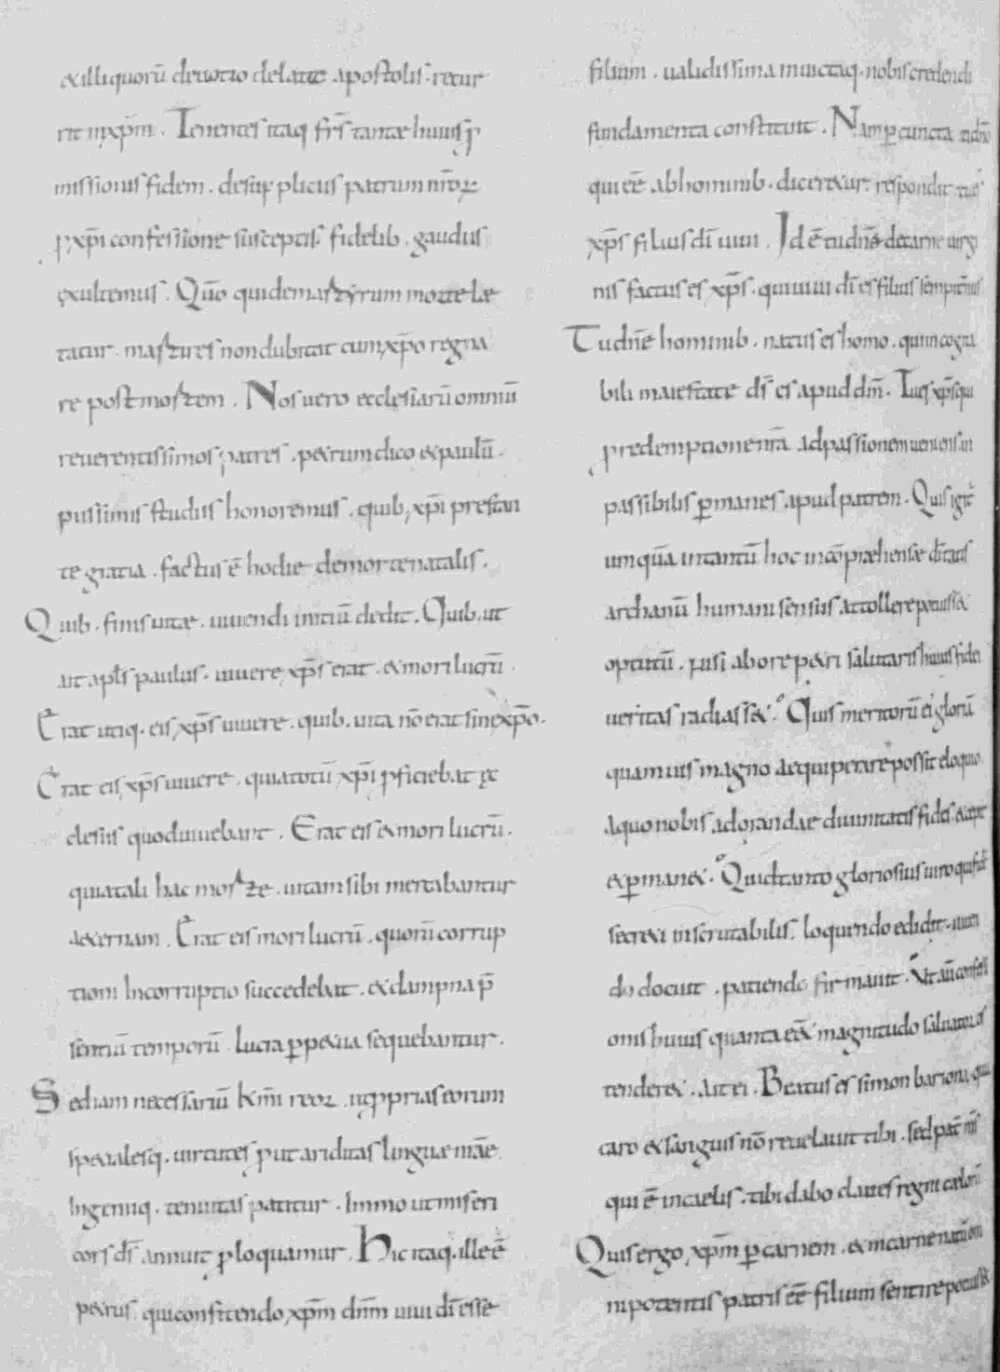 & illi quorū deuotio delatae apostolis. recur
rit in xp̄m. Tenentes itaq; frs̄ tantae huius p
missionis fidem. de supplicus patrum nr̄orꝝ
p xp̄i confessione susceptis. fidelib. gaudiis
exultemus. Qūo quidem martyrum morte lae
tatur. martires non dubitat cum xp̄o regna
re post mortem. Nos uero ecclesiarū omniū
reuerentissimos patres. p&rum dico & paulū.
piissimis studiis honoremus. quib; xp̄i prestan
te gratia. factus ē hodie de morte natalis.
Quib. finis uitae. uiuendi initiū dedit. Quib. ut
ait apl̄s paulus. uiuere xp̄s erat. & mori lucrū.
Erat utiq. eis xp̄s uiuere. quib. uita nō erat sine xp̄o.
Erat eis xp̄s uiuere. quia totū xp̄i pficiebat ec
clesiis quod uiuebant. Erat eis & mori lucrū.
quia tali hac morte. uitam sibi mercabantur
aeternam. Erat eis mori lucrū. quorū corrup
tioni Incorruptio succedebat. & dampna p̄
sentiū temporū. lucra pp&ua sequebantur.
Sed iam necessariū km̄i reor. ut pprias eorum
specialesq. uirtutes put ariditas linguae meāe
Ingeniiq. tenuitas patitur. Immo ut miseri
cors dś annuit ploquamur. Hic itaq. ille ē
p&rus. qui confitendo xp̄m dnm̄ uiui dī esse
filium. ualidissima inuictaq. nobis credendi
fundamenta constituit. Nam p cuncta
qui eē ab hominib. dicer&ur. respondit tu es
xp̄s filius dī uiui. Id ē tu dn̄e de carne uirgi
nis factus es xp̄s. qui uiui dī es filius sempit̄nus
Tu dn̄e hominib. natus es homo. qui incogita
bili maiestate ds̄ es apud dm̄. Tu es xp̄s qui
p redemptione nr̄a ad passionem ueniens. in
passibilis pmanes apud patrem. Quis igit̄
umquā in tantū hoc incōpraehensae
archanū humani sensus attollere potuiss&
optutū. nisi ab ore p&ri salutaris huius fidei
ueritas radiass&. Quis meritorū ei gloriā
quamuis magno aequiperare possit eloquio
a quo nobis adorandae diuinitatis fides & coepit
& pman&. Quid tanto gloriosius uiro qui fidei
secr&a inscrutabilis. loquendo edidit. uiuen
do docuit. patiendo firmauit. Ut aū confessi
onis huius quanta eēt magnitudo saluator os
tender&. ait ei. Beatus es simon bariona. quia
caro & sanguis nō reuelauit tibi. sed pat̄ ms̄
qui ē in caelis. tibi dabo claues regni caelorū
Quis ergo xp̄m p carnem. & in carne
nipotentis patris eē filium sentire potuiss&